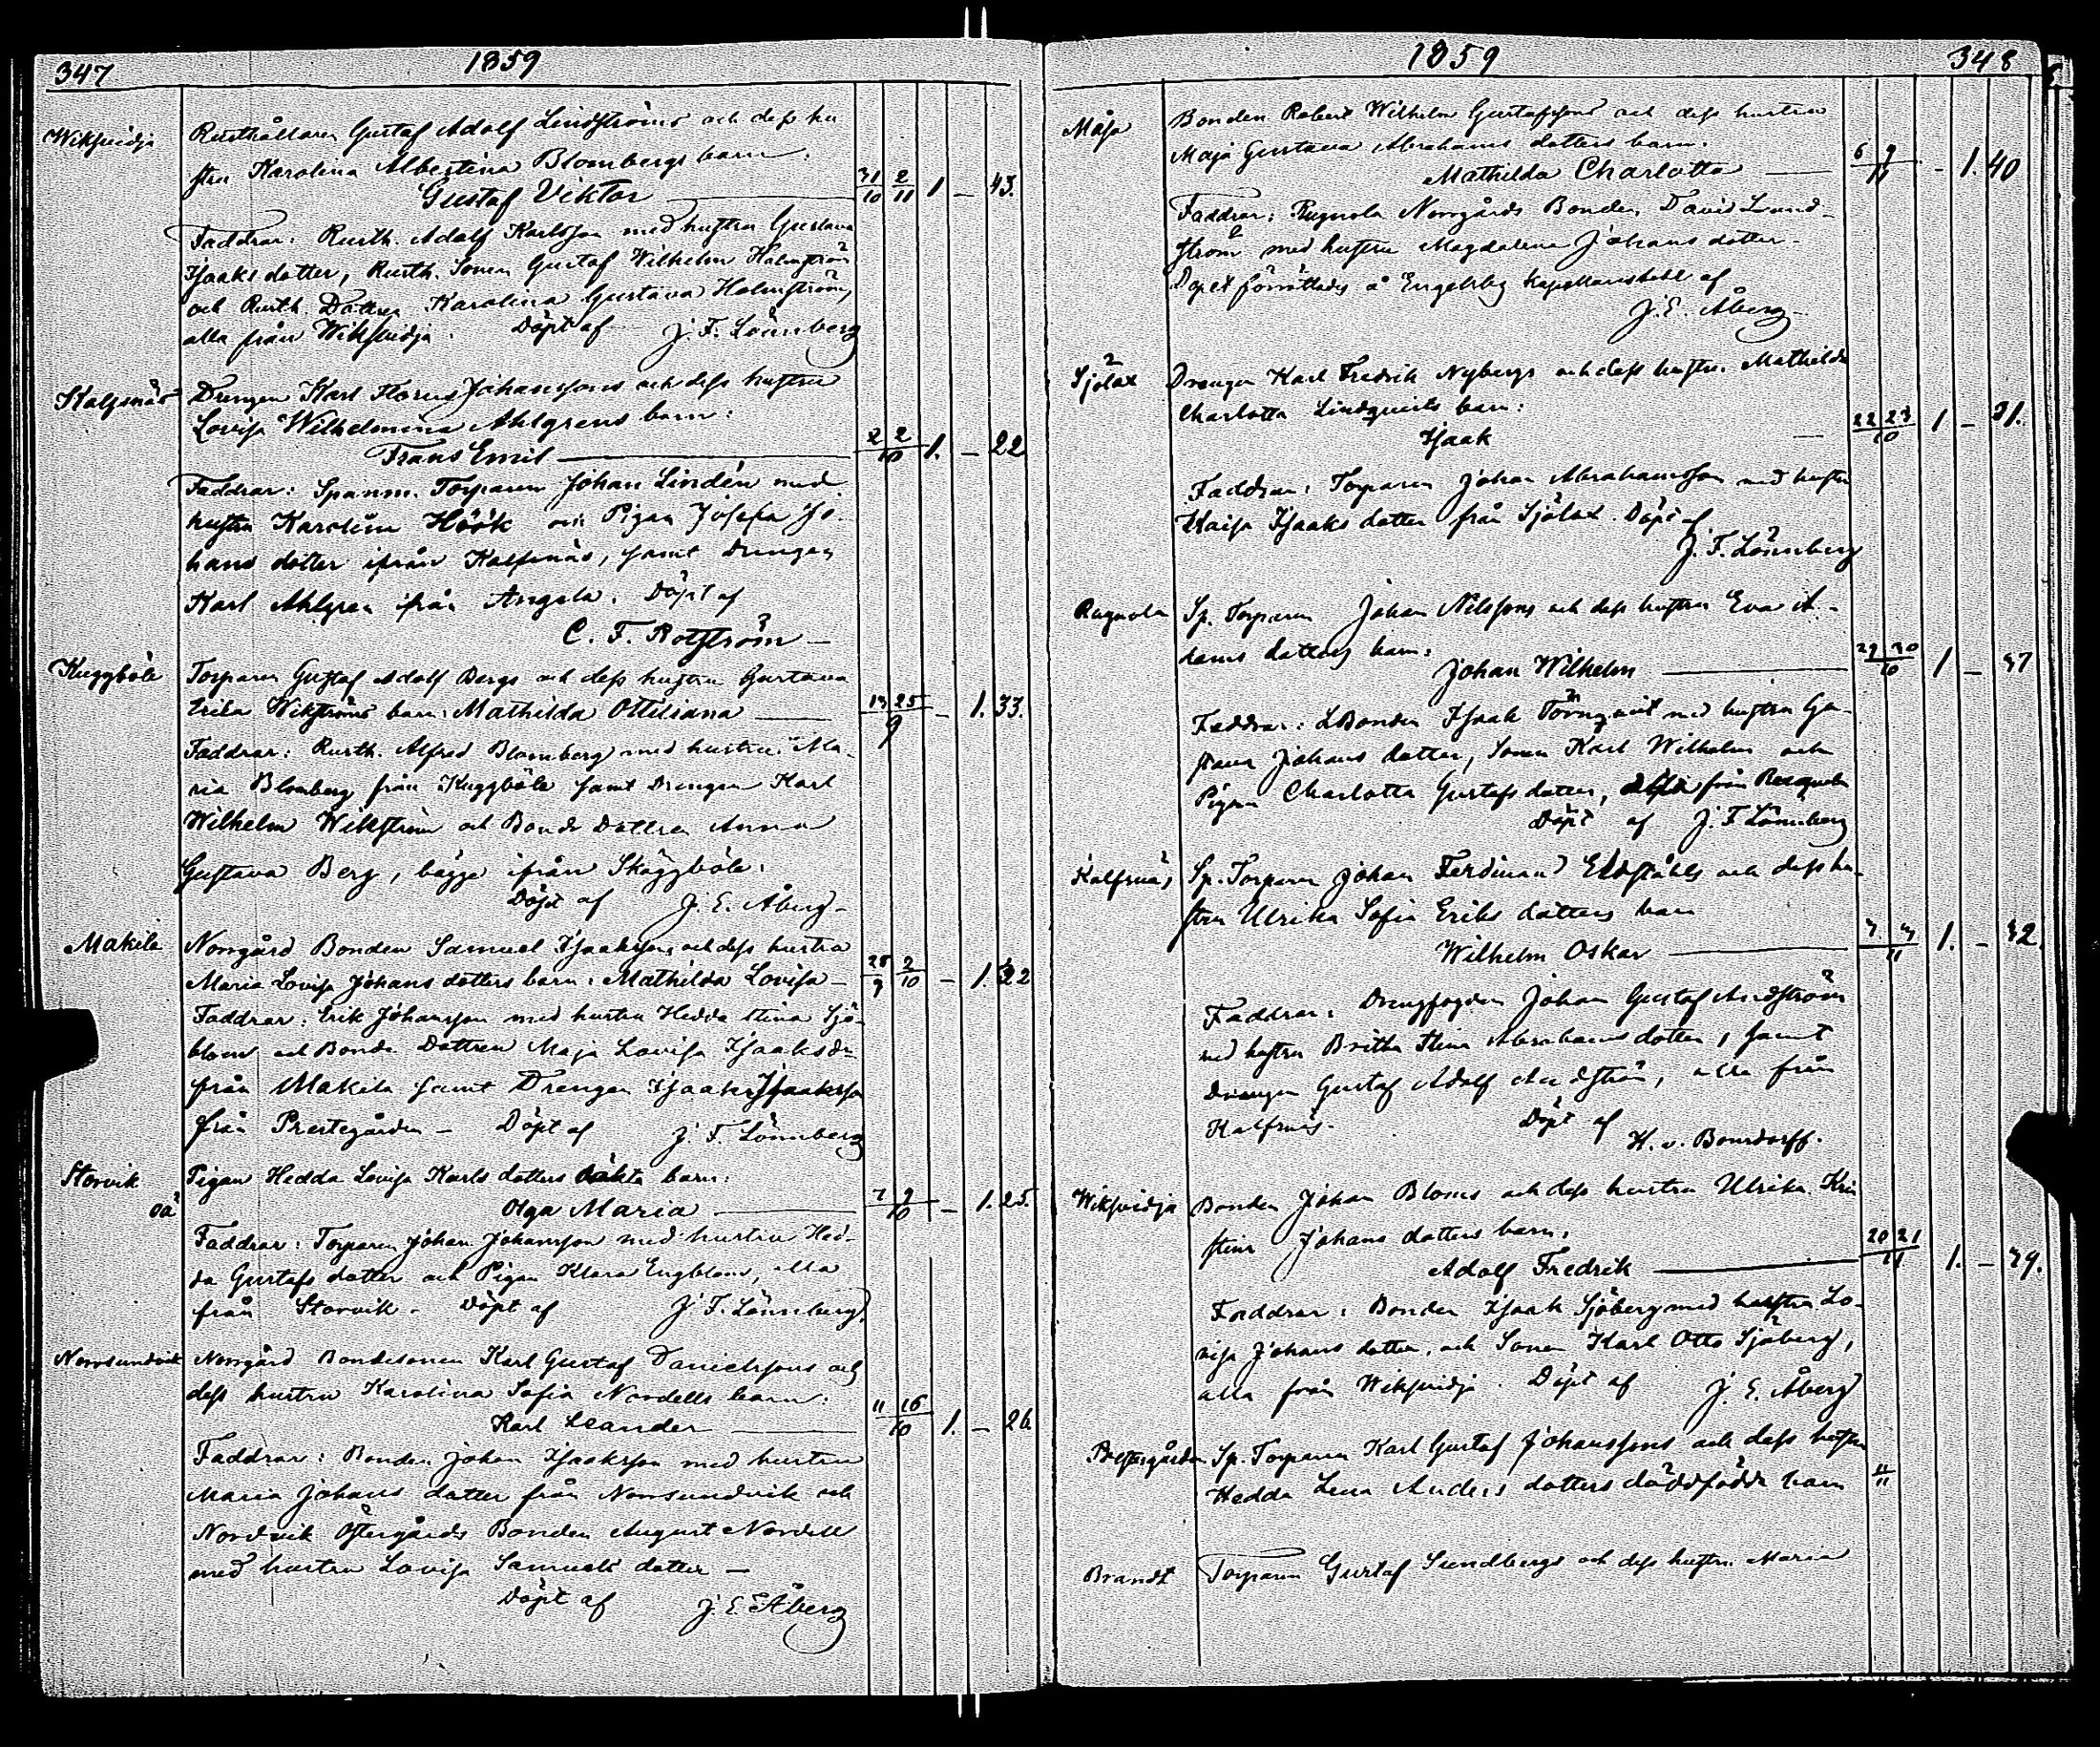 347 1859
Wiksvidja Rusthållaren Gustaf Adolf Lindströms och dess hu
stru Karolina Albertina Blombergs barn:
Gustaf Viktor — 31/10 2/11 1 — 43.
Faddrar: Rusth. Adolf Karlsson med hustru Gustava
Isaksdotter, Rusth. Sonen Gustaf Wilhelm Holmström
och Rusth. Dottren Karolina Gustava Holmström,
alla från Wiksvidja. Döpt af J. F. Lönnberg
Kalfsnäs Drengen Karl Johanssons och dess hustru
Lovisa Wilhelmina Ahlgrens barn:
Frans Emil — 2 2/10 1. — 22
Faddrar: Spanm. Torparen Johan Lindén med
hustru Karolina Höök och Pigan Josefa Jo-
hans dotter ifrån Kalfsnäs, samt Drengen
Karl Ahlgren från Angela. Döpt af
C. F. Rotström —
Kuggböle Torparen Gustaf Adolf Bergs och dess hustru Gustava
Erika Wikströms barn: Mathilda Ottiliana — 13 25/9 — 1. 33.
Faddrar: Rusth. Alfred Blomberg med hustru Ma-
ria Blomberg från Kuggböle samt Drengen Karl
Wilhelm Wikström och Bonde Dottren Anna
Gustava Berg, bägge ifrån Skäggböle.
Döpt af J. E. Åberg —
Makila Norrgård Bonden Samuel Isakssons och dess hustru
Maria Lovisa Johans dotters barn: Mathilda Lovisa — 28/9 2/10 — 1. 22
Faddrar: Erik Johansson med hustru Hedda Stina Sjö-
blom och Bonde Dottren Maja Lovisa Isaksdr
från Makila samt Drengen Isak Isaksson
från Prestegården — Döpt af J. F. Lönnberg
Storvik Pigan Hedda Lovisa Karls dotters oäkta barn:
oä Olga Maria — 7 9/10 — 1. 25.
Faddrar: Torparen Johan Johansson med hustru Hed-
da Gustafs dotter och Pigan Klara Engblom, alla
från Storvik. Döpt af J. F. Lönnberg.
Norrsundvik Norrgård Bondesonen Karl Gustaf Danielssons och
dess hustru Karolina Sofia Nordells barn:
Karl Leander — 11 16/10 1. — 26
Faddrar: Bonden Johan Isaksson med hustru
Maria Johans dotter från Norrsundvik och
Nordvik Östergårds Bonden August Nordell
med hustru Lovisa Samuels dotter —
Döpt af J. E. Åberg
1859 348
Måsa Bonden Robert Wilhelm Gustafssons och dess hustru
Maja Gustava Abrahams dotters barn:
Mathilda Charlotta — 6 9/11 — 1. 40
Faddrar: Rugnola Norrgårds Bonden David Lund-
ström med hustru Magdalena Johans dotter.
Dopet förrättades å Engelsby Kapellansbohl af
J. E. Åberg —
Sjölax Drengen Karl Fredrik Nybergs och dess hustru Mathilda
Charlotta Lindqvists barn:
Isaak — 22 23/10 1 — 31.
Faddrar: Torparen Johan Abrahamsson med hustru
Kaisa Isaaks dotter från Sjölax. Döpt af
J. F. Lönnberg
Rugnola Sp. Torparen Johan Nilssons och dess hustru Eva A-
dams dotters barn:
Johan Wilhelm — 29 30/10 1 — 37
Faddrar: LBonden Isaak Törnqvist med hustru Gu-
stava Johans dotter, Sonen Karl Wilhelm och
Pigan Charlotta Gustafs dotter, alla från Rugnola
Döpt af J. F. Lönnberg
Kalfsnäs Sp. Torparen Johan Ferdinand Eldståhls och dess hu-
stru Ulrika Sofia Eriks dotters barn
Wilhelm Oskar — 3. 3/11 1. — 32.
Faddrar: Drengfogden Johan Gustaf Lindström
med hustru Britha Stina Abrahams dotter, samt
Drengen Gustaf Adolf Lindström, alla från
Kalfsnäs. Döpt af H. v. Bonsdorff.
Wiksvidja Bonden Johan Bloms och dess hustru Ulrika Kri
stina Johans dotters barn:
Adolf Fredrik — 20 21/11 1. — 39.
Faddrar: Bonden Isaak Sjöberg med hustru Lo-
visa Johans dotter, och Sonen Karl Otto Sjöberg,
alla från Wiksvidja. Döpt af J. E. Åberg
Prestgården Sp. Torparen Karl Gustaf Johanssons och dess hustru
Hedda Lena Anders dotters dödfödda barn 11/11
Brandt Torparen Gustaf Sundbergs och dess hustru Maria